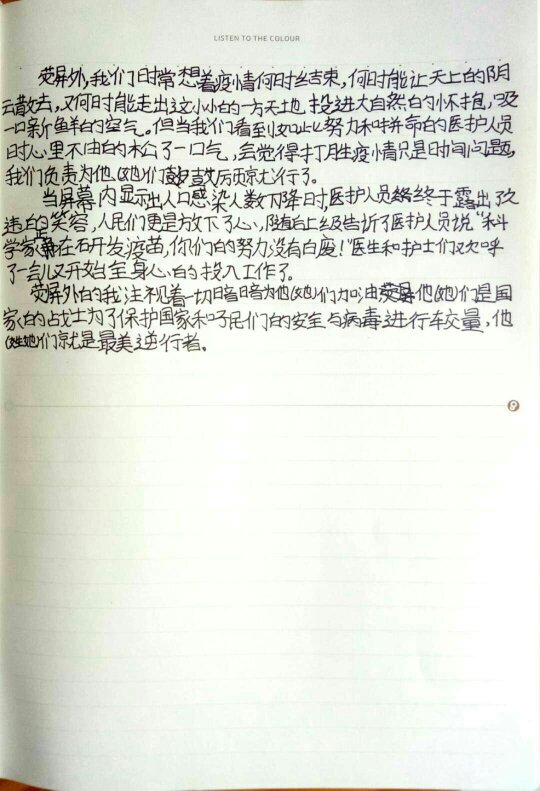 LISTEN TO THE COLOUR
荧屏外,我们时常想着疫情何时结束,何时能让天上的阴
云散去,又何时能走出这小小的一方天地 投进大自然的怀抱,吸
一口新鲜的空气。但当我们看到如此努力和拼命的医护人员
时心里不由的松了一口气,会觉得打胜疫情只是时间问题,
我们负责为他(她)们鼓励就行了。
当屏幕内显示出人口感染人数下降时医护人员终于露出了久
违的笑容,人民们更是放下了心,随即上级告诉了医护人员说“科
学家在研发疫苗,你们的努力没有白废!”医生和护士们欢呼
了一会儿又开始全身心的投入工作了。
荧屏外的我注视着一切暗暗为他(她)们加油 他(她)们是国
家的战士为了保护国家和子民们的安全与病毒进行较量,他
(她)们就是最美逆行者。
9